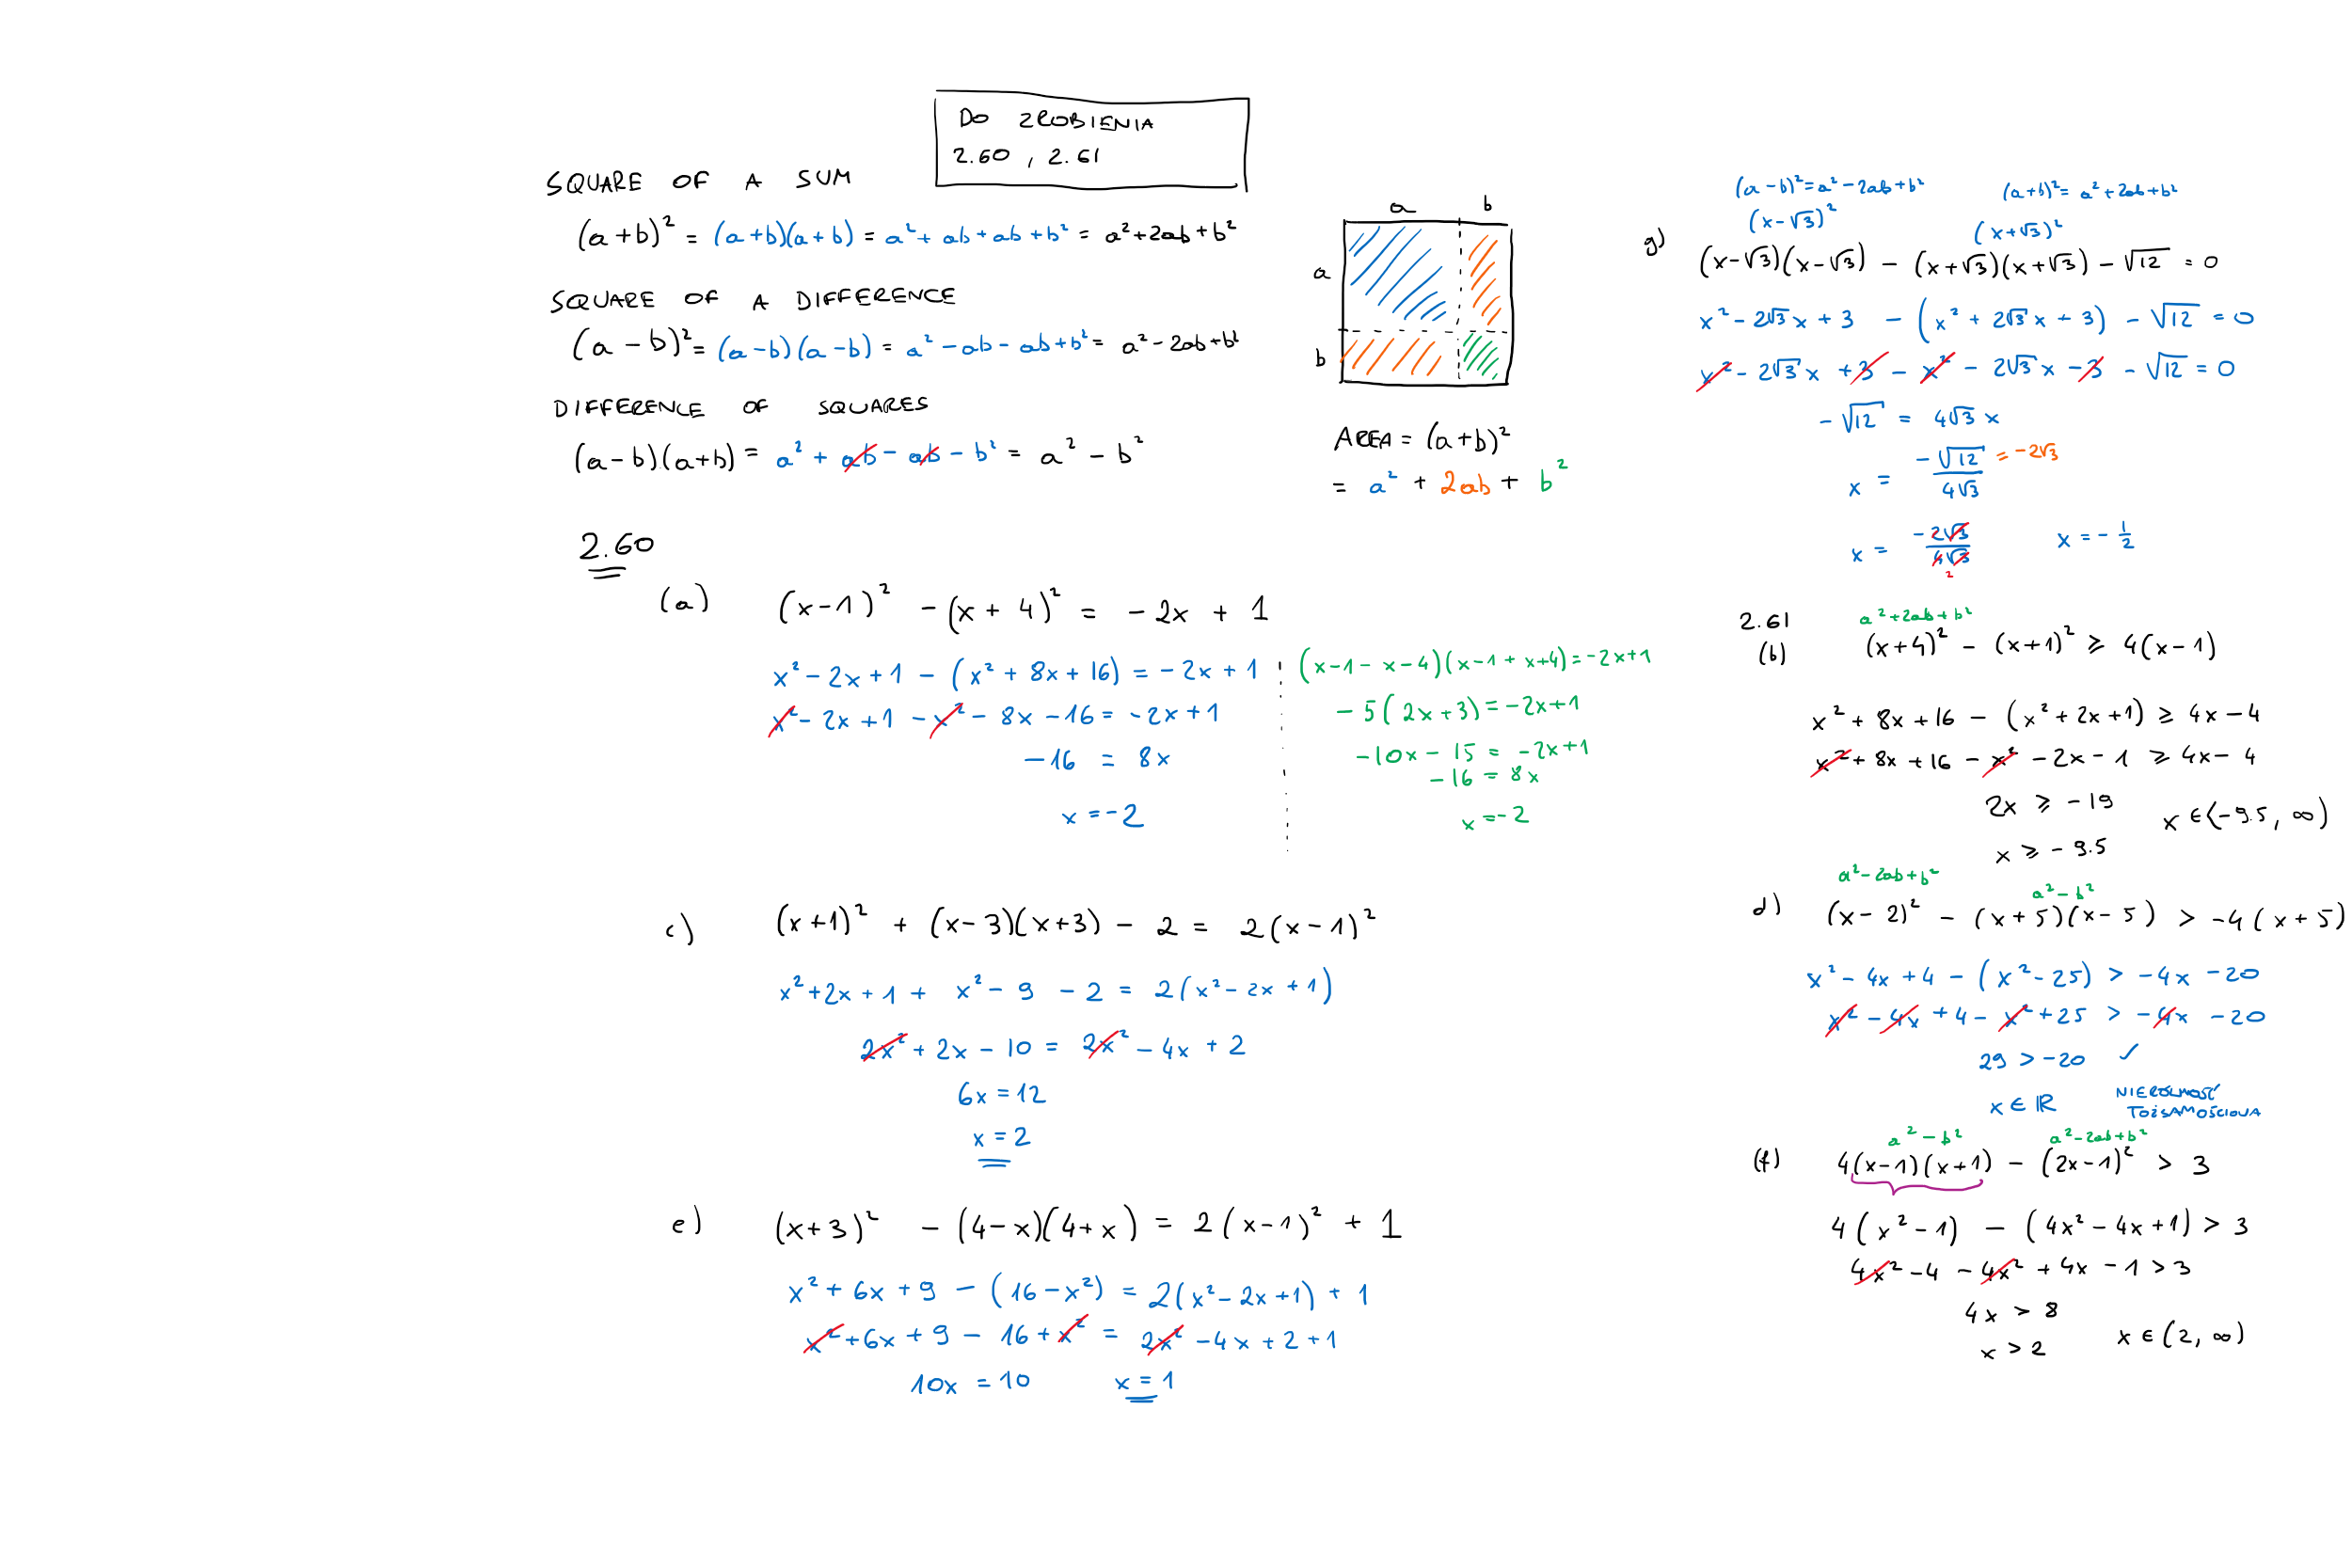 DO ZROBIENIA
2.60 , 2.61
SQUARE OF A SUM
(a+b)² = (a+b)(a+b) = a² + ab + ab + b² = a²+2ab+b²
SQUARE OF A DIFFERENCE
(a-b)² = (a-b)(a-b) = a² - ab - ab + b² = a² - 2ab + b²
DIFFERENCE OF SQUARES
(a-b)(a+b) = a² + ab - ab - b² = a² - b²
a b
a
b
AREA = (a+b)²
= a² + 2ab + b²
2.60
(a) (x-1)² - (x+4)² = -2x + 1
x² - 2x + 1 - (x² + 8x + 16) = -2x + 1
x² - 2x + 1 - x² - 8x - 16 = -2x + 1
-16 = 8x
x = -2
(x-1 - x-4)(x-1 + x+4) = -2x+1
-5(2x+3) = -2x+1
-10x - 15 = -2x+1
-16 = 8x
x = -2
c) (x+1)² + (x-3)(x+3) - 2 = 2(x-1)²
x²+2x+1 + x² - 9 - 2 = 2(x² - 2x + 1)
2x² + 2x - 10 = 2x² - 4x + 2
6x = 12
x = 2
e) (x+3)² - (4-x)(4+x) = 2(x-1)² + 1
x² + 6x + 9 - (16 - x²) = 2(x² - 2x + 1) + 1
x² + 6x + 9 - 16 + x² = 2x² - 4x + 2 + 1
10x = 10 x = 1
(a-b)² = a² - 2ab + b² (a+b)² = a² + 2ab + b²
(x-√3)² (x+√3)²
g) (x-√3)(x-√3) - (x+√3)(x+√3) - √12 = 0
x² - 2√3x + 3 - (x² + 2√3x + 3) - √12 = 0
x² - 2√3x + 3 - x² - 2√3x - 3 - √12 = 0
-√12 = 4√3 x
x = -√12/4√3 = -2√3
x = -2√3/4√3 2 x = -1/2
2.61
a²+2ab+b²
(b) (x+4)² - (x+1)² ⩾ 4(x-1)
x² + 8x + 16 - (x² + 2x + 1) ⩾ 4x - 4
x² + 8x + 16 - x² - 2x - 1 ⩾ 4x - 4
2x ⩾ -19
x ∈ ⟨-9.5, ∞)
x ⩾ -9.5
a² - 2ab + b² a² - b²
d) (x-2)² - (x+5)(x-5) > -4(x+5)
x² - 4x + 4 - (x² - 25) > -4x - 20
x² - 4x + 4 - x² + 25 > -4x - 20
29 > -20 ✓
x ∈ ℝ NIERÓWNOŚĆ
TOŻSAMOŚCIOWA
a² - b² a² - 2ab + b²
(f) 4(x-1)(x+1) - (2x-1)² > 3
4(x² - 1) - (4x² - 4x + 1) > 3
4x² - 4 - 4x² + 4x - 1 > 3
4x > 8
x > 2 x ∈ (2, ∞)